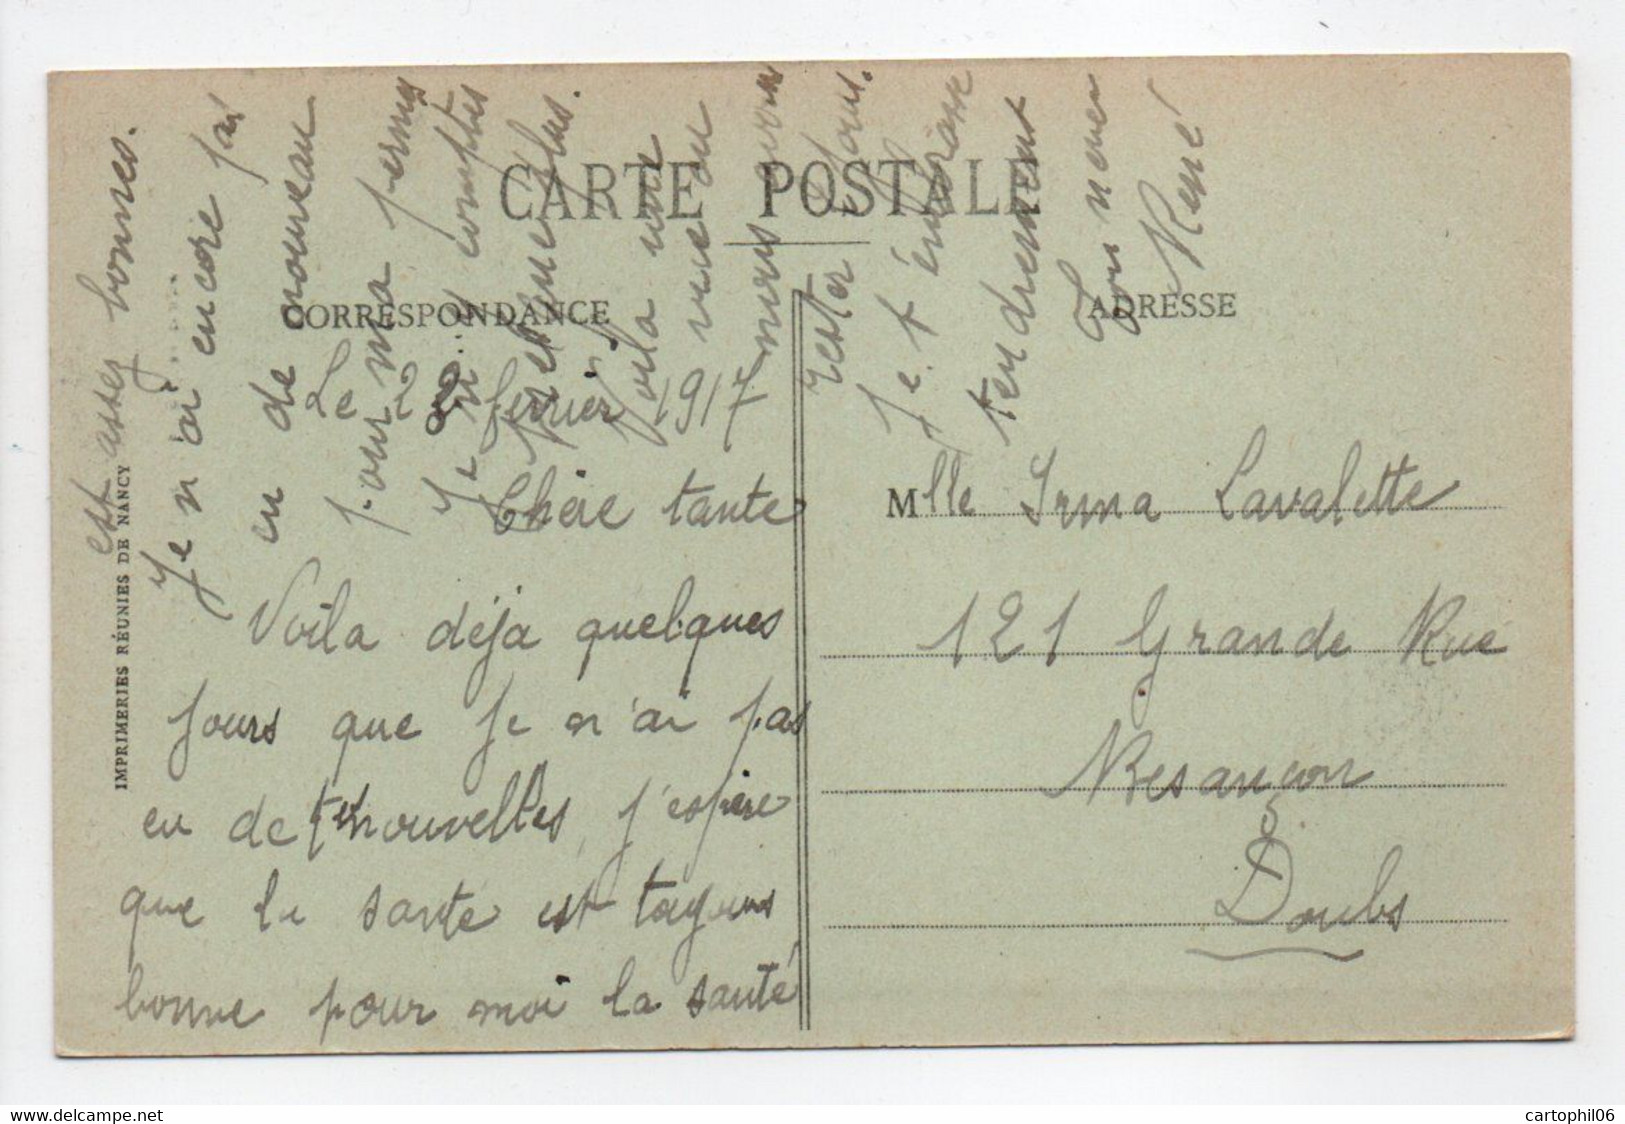 CARTE POSTALE
CORRESPONDANCE
ADRESSE
IMPRIMERIES RÉUNIES DE NANCY
Le 22 fevrier 1917
Chère tante
Voila déja quelques
jours que je n'ai pas
eu de tes nouvelles, j'espère
que la sante est toujours
bonne pour moi la santé
est assez bonnes.
Je n'ai encore pas
eu de nouveau
pour ma permes
Je n'y comptes
presque plus.
Voila une
vue ou
nous avons
rester 8 jours.
Je t'embrasse
tendrement
Ton neveu
René
Mlle Irma Lavalette
121 Grande Rue
Besançon
Doubs
cartophil06
www.delcampe.net